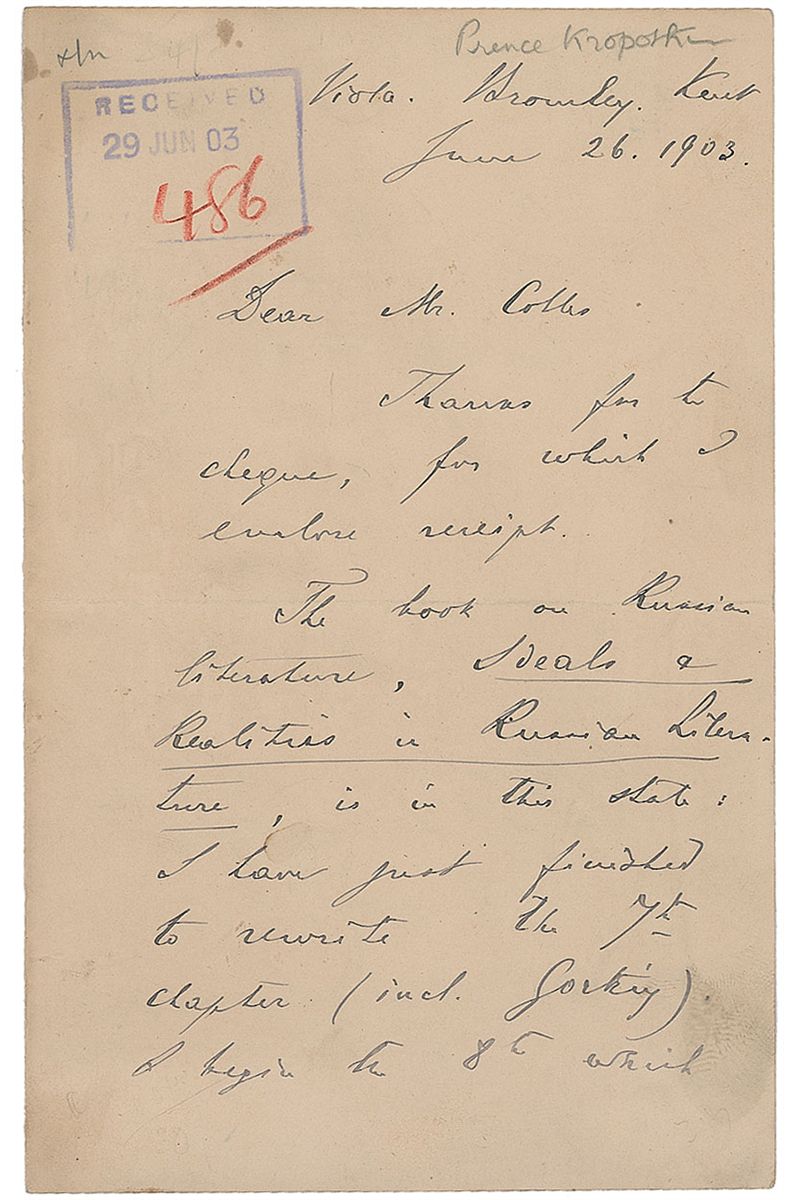 Prince Kropotkin
RECEIVED
29 JUN 03
486
Viola. Bromley. Kent
June 26. 1903.
Dear Mr. Colles
Thanks for the
cheque, for which I
enclose receipt.
The book on Russian
literature, Ideals &
Realities in Russian Litera-
ture, is in this state:
I have just finished
to rewrite the 7th
chapter (incl. Gorkiy).
I begin the 8th which